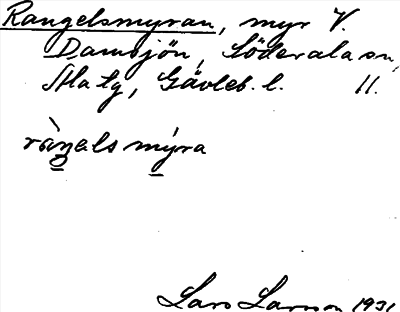 Rangelsmyran, myr V.
Damsjön, Söderala sn,
Ala tg, Gävleb. l. 11.
ràŋals mýra
Lars Larsson 1931